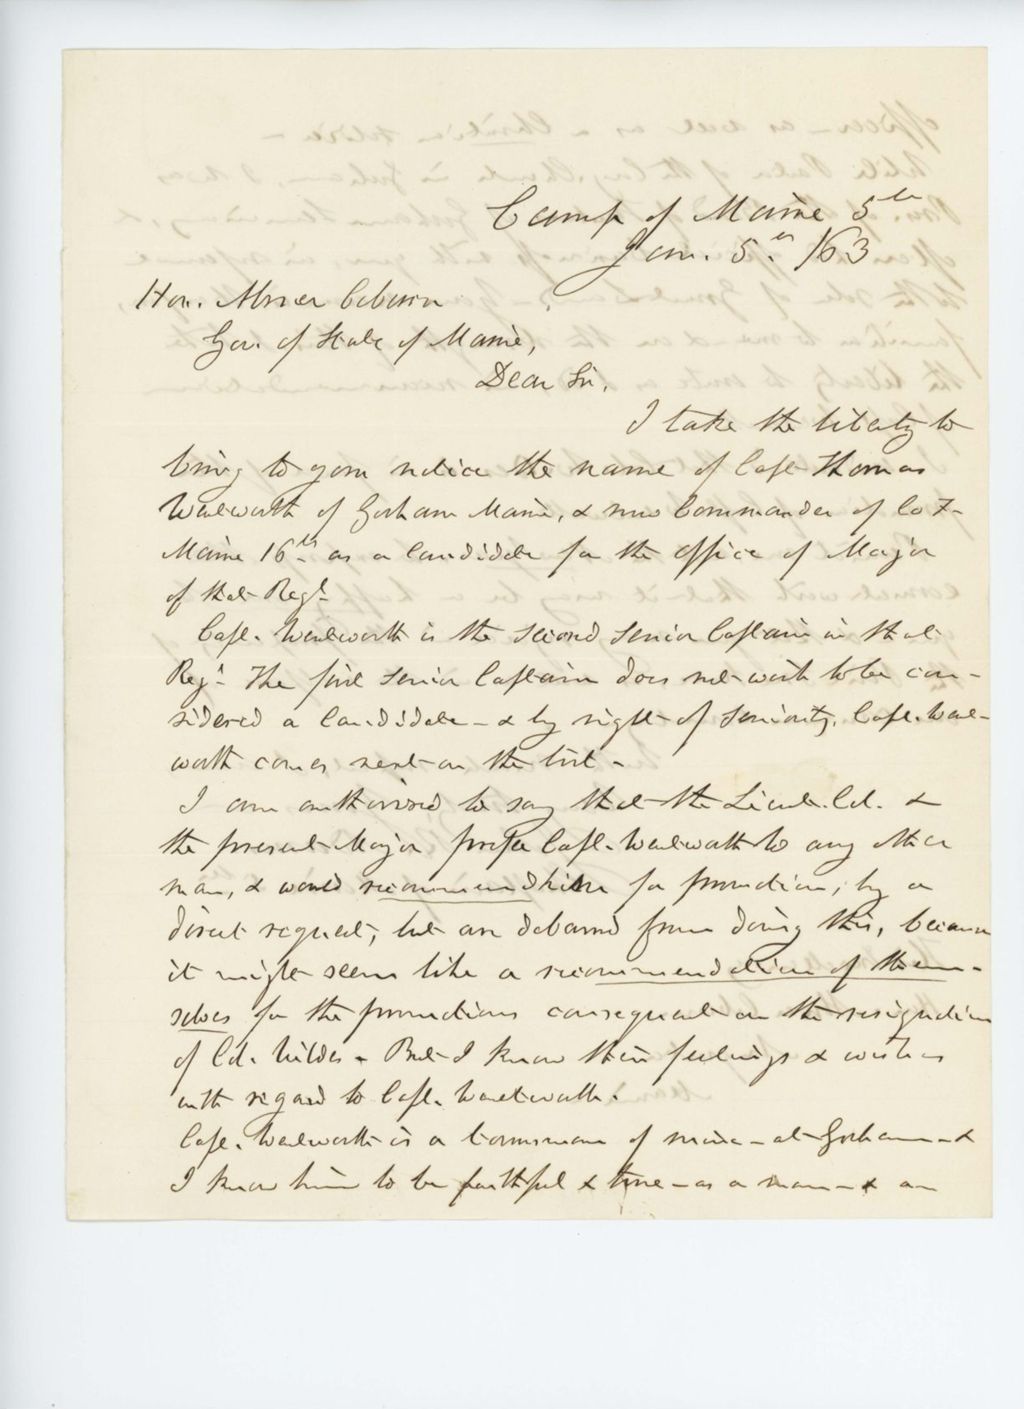 Camp of Maine 5th
Jan. 5th /63
Hon. Abner Coburn
Gov. of State of Maine,
Dear Sir,
I take the liberty to
bring to your notice the name of Capt Thomas
Wentworth of Gorham Maine, & now Commander of Co F-
Maine 16th as a Candidate for the office of Major
of that Regt.
Capt. Wentworth is the second Senior Captain in that
Regt. The first Senior Captain does not wish to be con-
sidered a Candidate - & by right of Seniority, Capt. Went-
worth comes next on the list -
I am authorised to say that the Lieut. Col. &
the present Major prefer Capt. Wentworth to any other
man, & would recommend him for promotion, by a
direct request, but are debarred from doing this, because
it might seem like a recommendation of them-
selves for the promotions consequent on the resignation
of Col. Wildes - But I know their feelings & wishes
with regard to Capt. Wentworth.
Capt. Wentworth is a townsman of mine - at Gorham - &
I know him to be faithful & true - as a man - & an